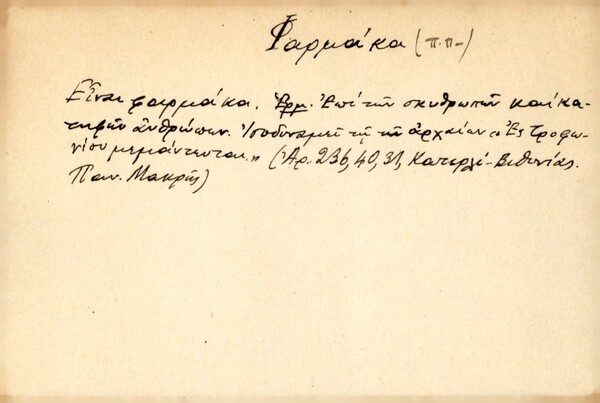 Φαρμάκα (π.π.)
Εἶναι φαρμάκα. Ἑρμ. Ἐπί τῶν σκυθρωπῶν καί κα-
τηφῶν ἀνθρώπων. Ἰσοδυναμεῖ τῇ τῶν ἀρχαίων "Ἐς Τροφω-
νίου μεμάντευται." (Ἀρ. 236, 40, 31, Κατιρλί-Βιθυνίας.
Παν. Μακρῆς)